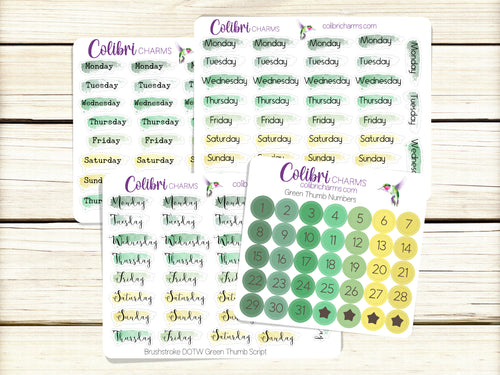 Colibri CHARMS
Monday Monday
Tuesday Tuesday
Wednesday Wednesday
Thursday Thursday
Friday Friday
Saturday Saturday
Sunday
Thursday
Colibri CHARMS
colibricharms.com
Monday Monday Monday Monday
Tuesday Tuesday Tuesday Tuesday
Wednesday Wednesday Wednesday Wednesday
Thursday Thursday Thursday Thursday
Friday Friday Friday Friday
Saturday Saturday Saturday Saturday
Sunday Sunday Sunday Sunday
Monday
Tuesday
Wednesday
Colibri CHARMS
Monday Monday Monday
Tuesday Tuesday Tuesday
Wednesday Wednesday Wednesday
Thursday Thursday Thursday
Friday Friday Friday
Saturday Saturday Saturday
Sunday Sunday Sunday
Thursday Friday Saturday Sunday
Brushstroke DOTW Green Thumb Script
Colibri CHARMS
colibricharms.com
Green Thumb Numbers
1 2 3 4 5 6 7
8 9 10 11 12 13 14
15 16 17 18 19 20 21
22 23 24 25 26 27 28
29 30 31